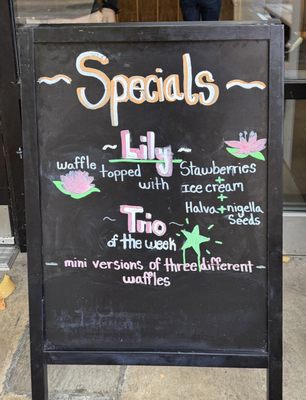 Specials
Lily
waffle topped with Stawberries
+
Ice cream
+
Halva + nigella
Seeds
Trio
of the week
mini versions of three different
waffles